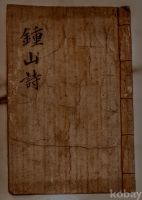 鐘山詩
kobay